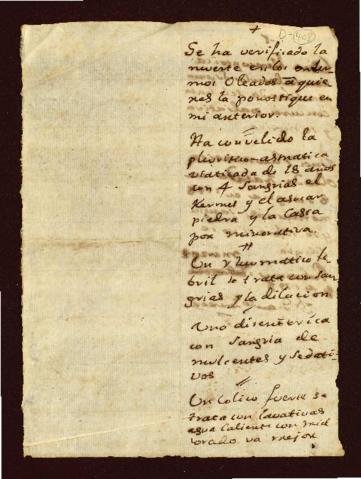 +
Se ha verificado la
muerte en los enfer
mos Oleados a quie
nes la pronostique en
mi anterior.
Ha convelido la
pleuritico-asmatica
viaticada de 18 años
con 4 Sangrias el
Kermes y el
piedra y la Casca
por minorativa.
Un rheumatico fe
bril se trata con San
grias y la dilucion
Uno disenterica
con Sangria de
mulcentes y Sedati
vos
Un Colico fuerte se
trata con Lavativas
agua Caliente con
orado va mejor